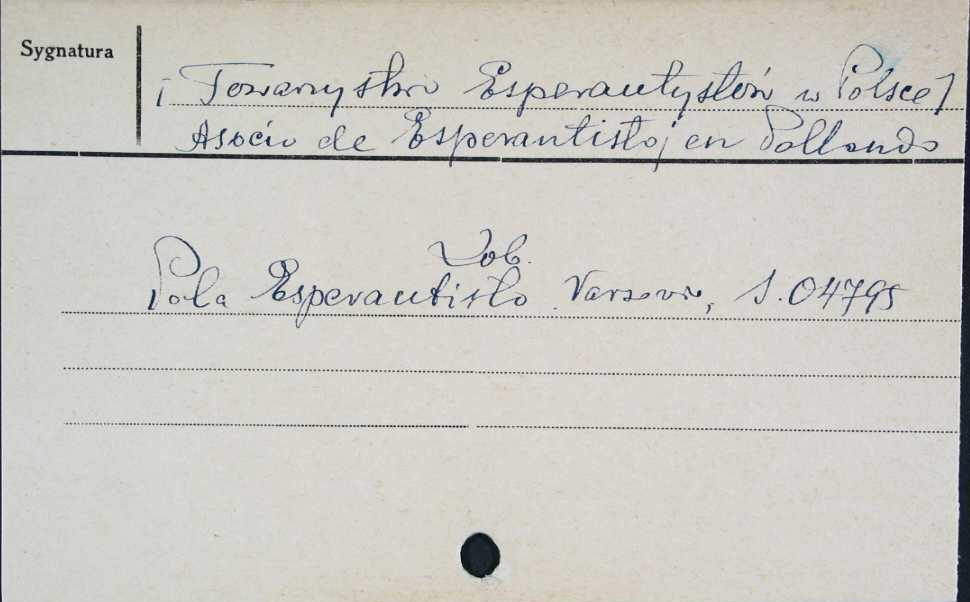 Sygnatura
[Towarzystwo Esperantystów w Polsce]
Asocio de Esperantistoj en Pollando
Zob.
Pola Esperantisto. Varsovio, S. 04795